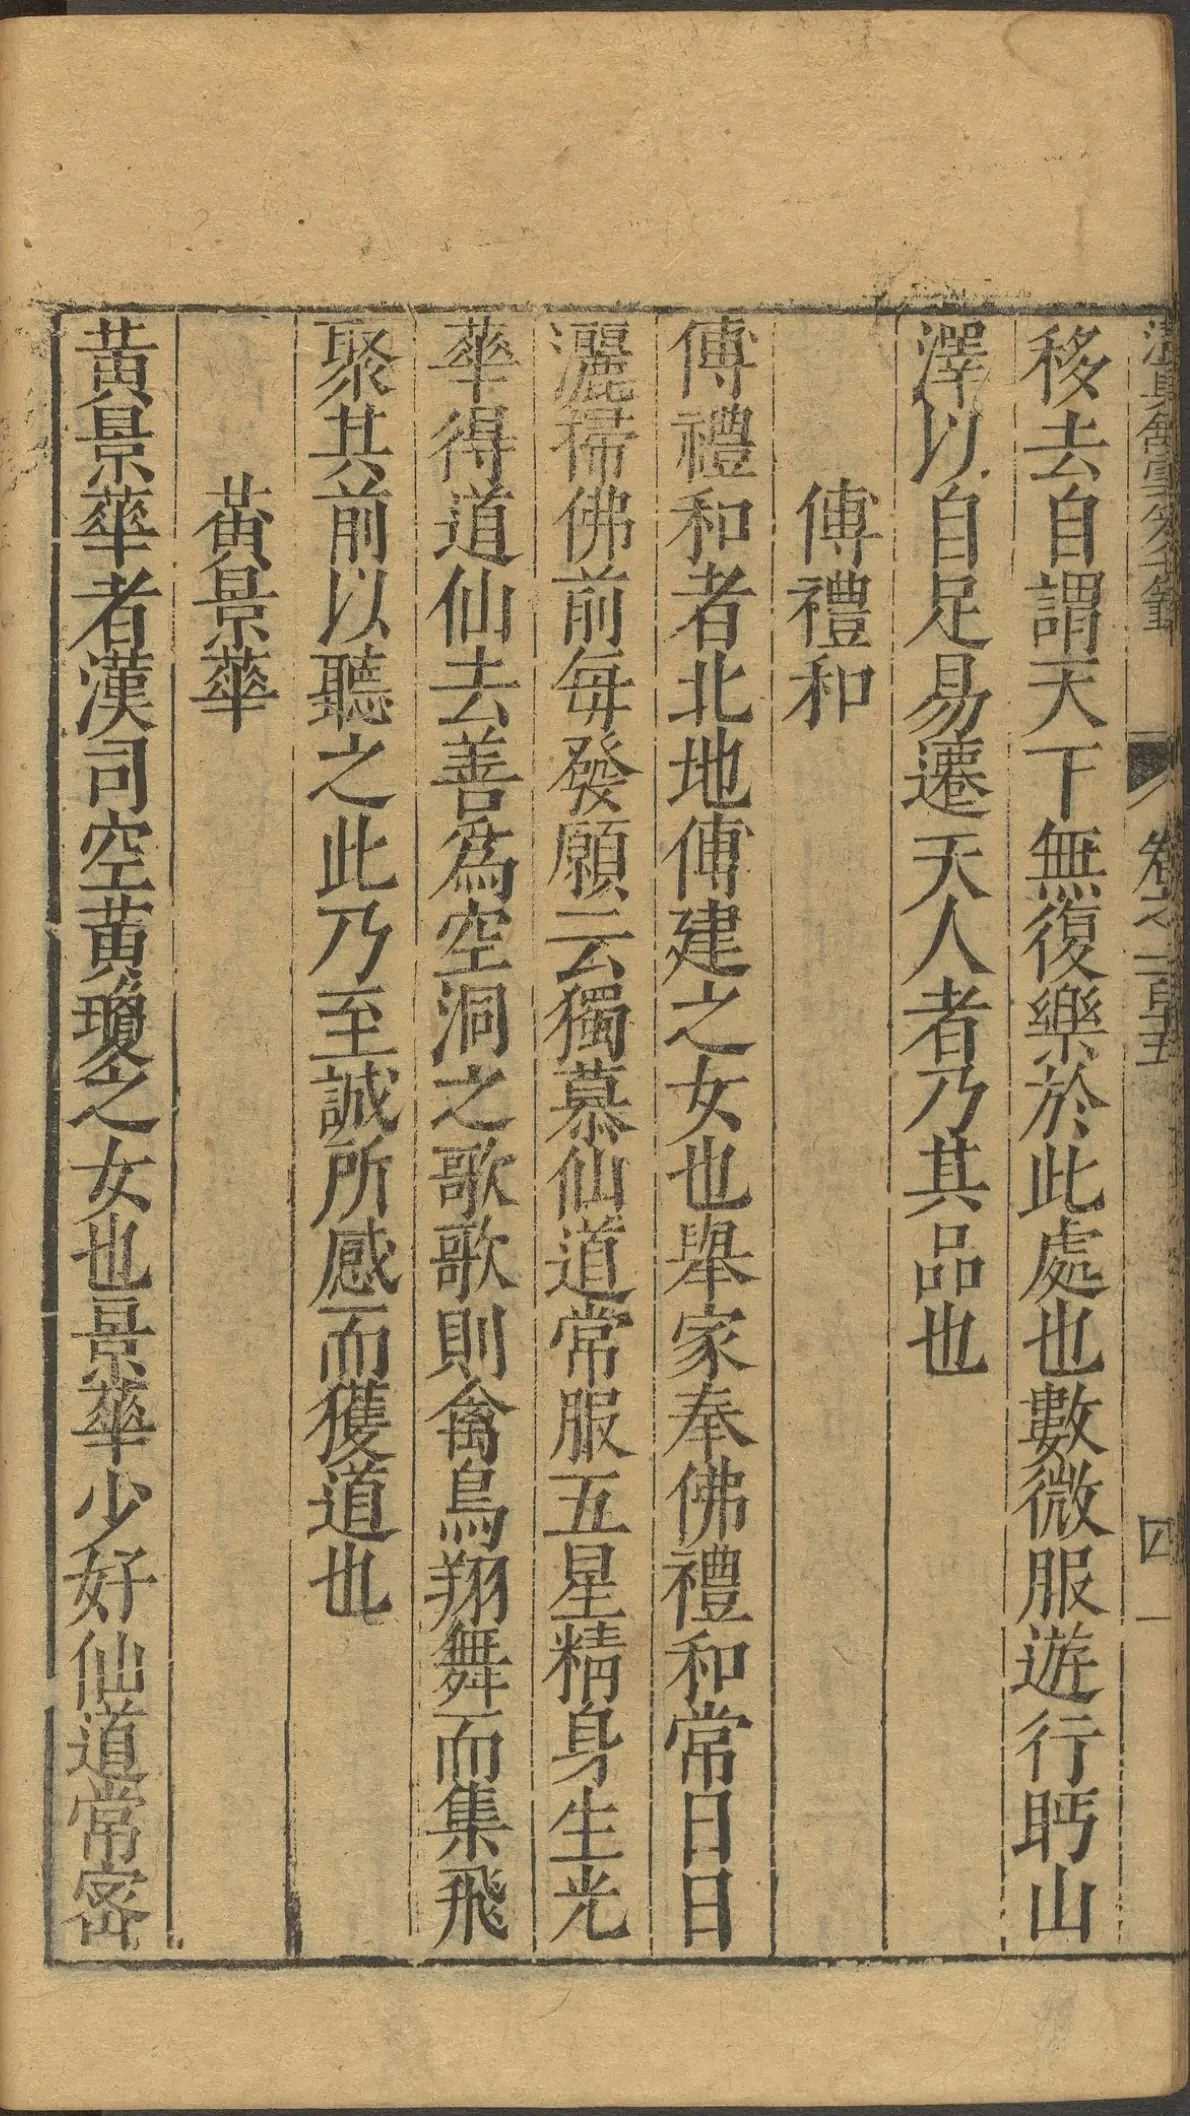 清真館雲笈七籤 卷之一百五 四
移去自謂天下無復樂於此處也數微服遊行眄山
澤以自足易遷天人者乃其品也
傅禮和
傅禮和者北地傅建之女也舉家奉佛禮和常日日
灑掃佛前每發願云獨慕仙道常服五星精身生光
華得道仙去善爲空洞之歌歌則禽鳥翔舞而集飛
聚其前以聽之此乃至誠所感而獲道也
黃景華
黃景華者漢司空黃瓊之女也景華少好仙道常密